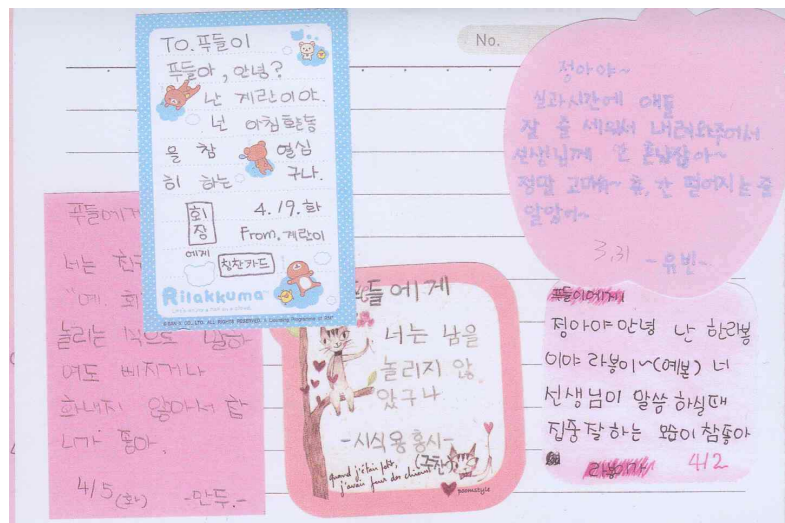 TO. 푸들이
푸들아, 안녕?
난 계란이야.
넌 아침활동
을 참 열심
히 하는 구나.
회장
에게
4. 19. 화
From. 계란이
칭찬카드
Rilakkuma
No.
정아야~
실과시간에 애들
잘 줄 세워서 내려와주어서
선생님께 안 혼났잖아~
정말 고마워~ 휴, 간 떨어지는 줄
알았어~
3, 31 -유빈-
푸들에게
너는
놀리는 식으로 말하
여도 삐지거나
화내지 않아서 참
좋아.
4/5 (화) -만두.-
푸들에게
너는 남을
놀리지 않
았구나
-시식용 홍시-
quand j'étais petit,
j'avais peur des chiens
poomstyle
푸들이에게
정아야 안녕 난 한라봉
이야 라봉이~(예본) 너
선생님이 말씀 하실때
집중 잘 하는 모습이 참좋아
라봉이가 4.12